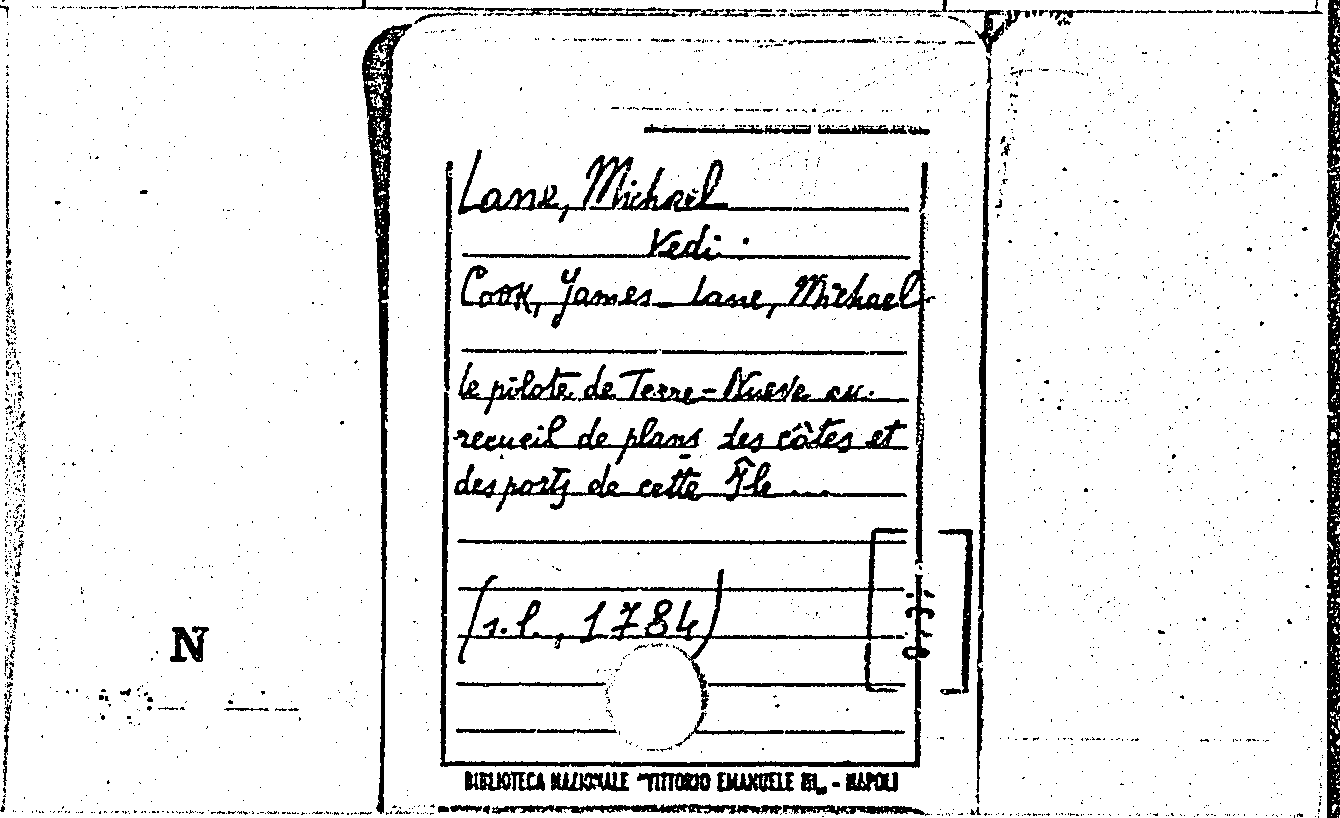 Lane, Michael
Vedi:
Cook, James - Lane, Michael
Le pilote de Terre-Nueve ou
recueil de plans des côtes et
des ports de cette Île ...
(s.l., 1784)
N
BIBLIOTECA NAZIONALE "VITTORIO EMANUELE III„ - NAPOLI